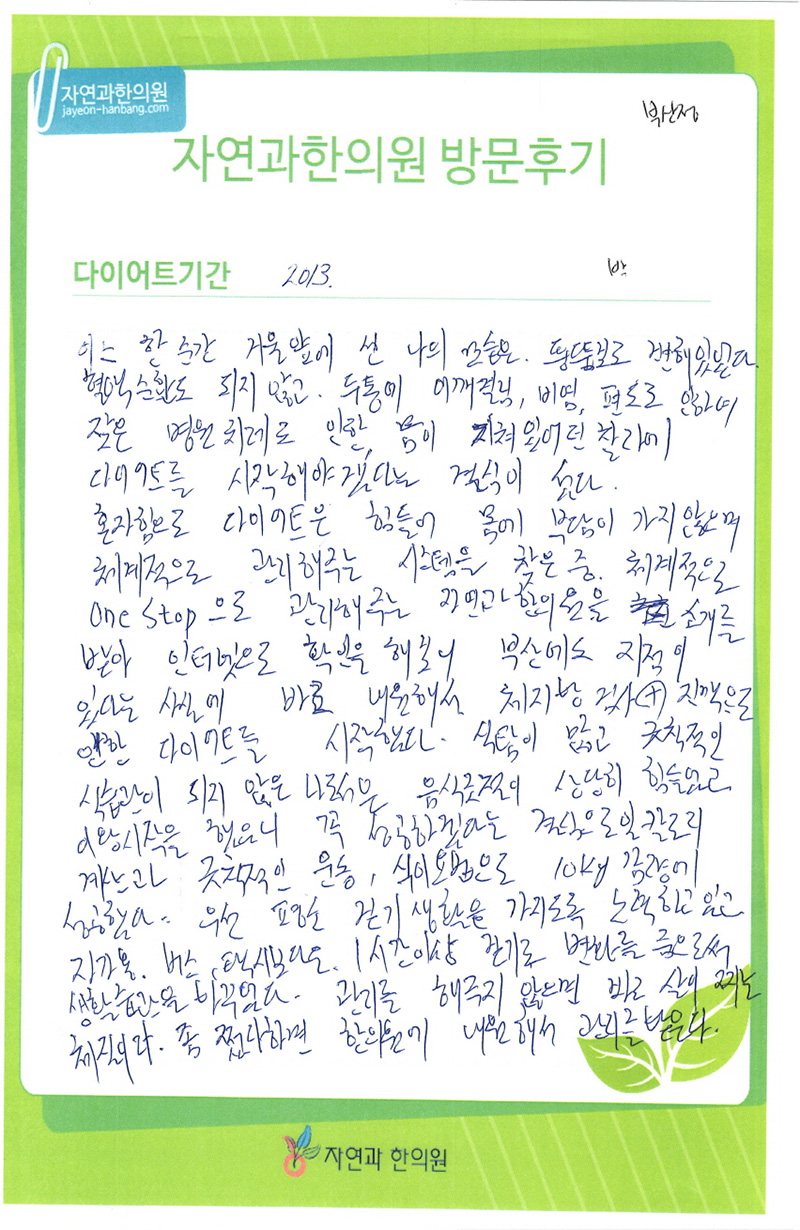 자연과한의원
jayeon-hanbang.com
자연과한의원 방문후기
다이어트기간 2013.
박
어느 한 순간 거울앞에 선 나의 모습은. 뚱뚱보로 변해있었다.
혈액순환도 되지 않고. 두통에 어깨결림, 비염, 편도로 인하여
잦은 병원치레로 인한, 몸이 지쳐있어던 찰라에
다이어트를 시작해야겠다는 결심이 섰다.
혼자힘으로 다이어트은 힘들어 몸에 부담이 가지않으며
체계적으로 관리해주는 시스템을 찾은 중. 체계적으로
One Stop 으로 관리해주는 자연과한의원을 소개를
받아 인터넷으로 확인을 해보니 부산에도 지점이
있다는 사실에 바로 내원해서 체지방 검사(+) 진맥으로
다이어트를 시작했다. 식탐이 많고 규칙적인
식습관이 되지 않은 나로서는 음식조절이 상당히 힘들었고
시작을 했으니 꼭 성공하겠다는 결심으로 일 칼로리
계산과 규칙적인 운동, 식이요법으로 10kg 감량에
성공했다. 우선 평소 걷기 생활을 가지도록 노력하고 있고
자가용. 버스, 택시보다도. 1시간이상 걷기로 변화를 줌으로써
생활습관을 바꾸었다. 관리를 해주지 않으면 바로 살이 찌는
체질이라. 좀 쪘다하면 한의원에 내원해서 관리를 받는다.
자연과 한의원